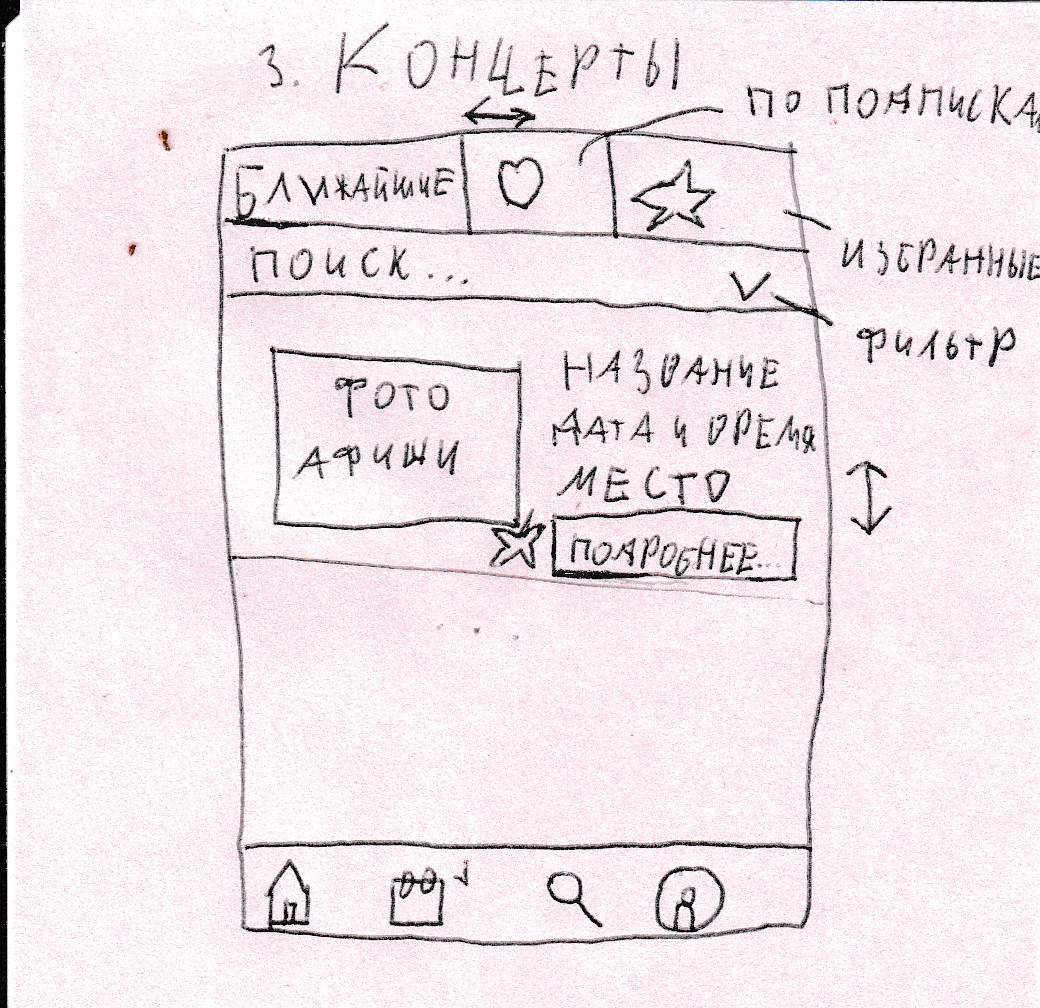 3. КОНЦЕРТЫ
ПО ПОДПИСКАМ
БЛИЖАЙШИЕ
ИЗБРАННЫЕ
ПОИСК...
ФИЛЬТР
ФОТО
АФИШИ
НАЗВАНИЕ
ДАТА И ВРЕМЯ
МЕСТО
ПОДРОБНЕЕ...